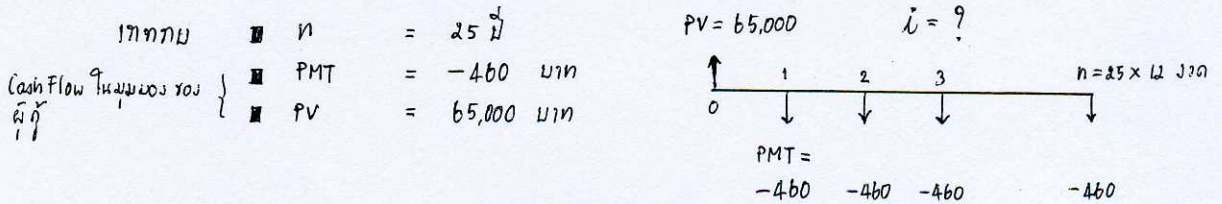 n = 25 ปี
Cash Flow ในมุมมอง ของ ผู้กู้
PMT = -460 บาท
PV = 65,000 บาท
PV = 65,000 i = ?
1 2 3 n = 25 x 12 งวด
0
PMT =
-460 -460 -460 -460